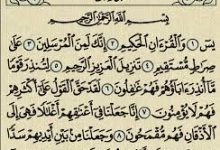 بِسْمِ اللَّهِ الرَّحْمَٰنِ الرَّحِيمِ
يسٓ ١ وَالْقُرْءَانِ الْحَكِيمِ ٢ إِنَّكَ لَمِنَ الْمُرْسَلِينَ ٣ عَلَىٰ
صِرَٰطٍ مُّسْتَقِيمٍ ٤ تَنزِيلَ الْعَزِيزِ الرَّحِيمِ ٥ لِتُنذِرَ قَوْمًا
مَّا أُنذِرَ ءَابَاؤُهُمْ فَهُمْ غَٰفِلُونَ ٦ لَقَدْ حَقَّ الْقَوْلُ عَلَىٰ أَكْثَرِهِمْ
فَهُمْ لَا يُؤْمِنُونَ ٧ إِنَّا جَعَلْنَا فِي أَعْنَٰقِهِمْ أَغْلَٰلًا فَهِيَ إِلَى
الْأَذْقَانِ فَهُم مُّقْمَحُونَ ٨ وَجَعَلْنَا مِن بَيْنِ أَيْدِيهِمْ سَدًّا